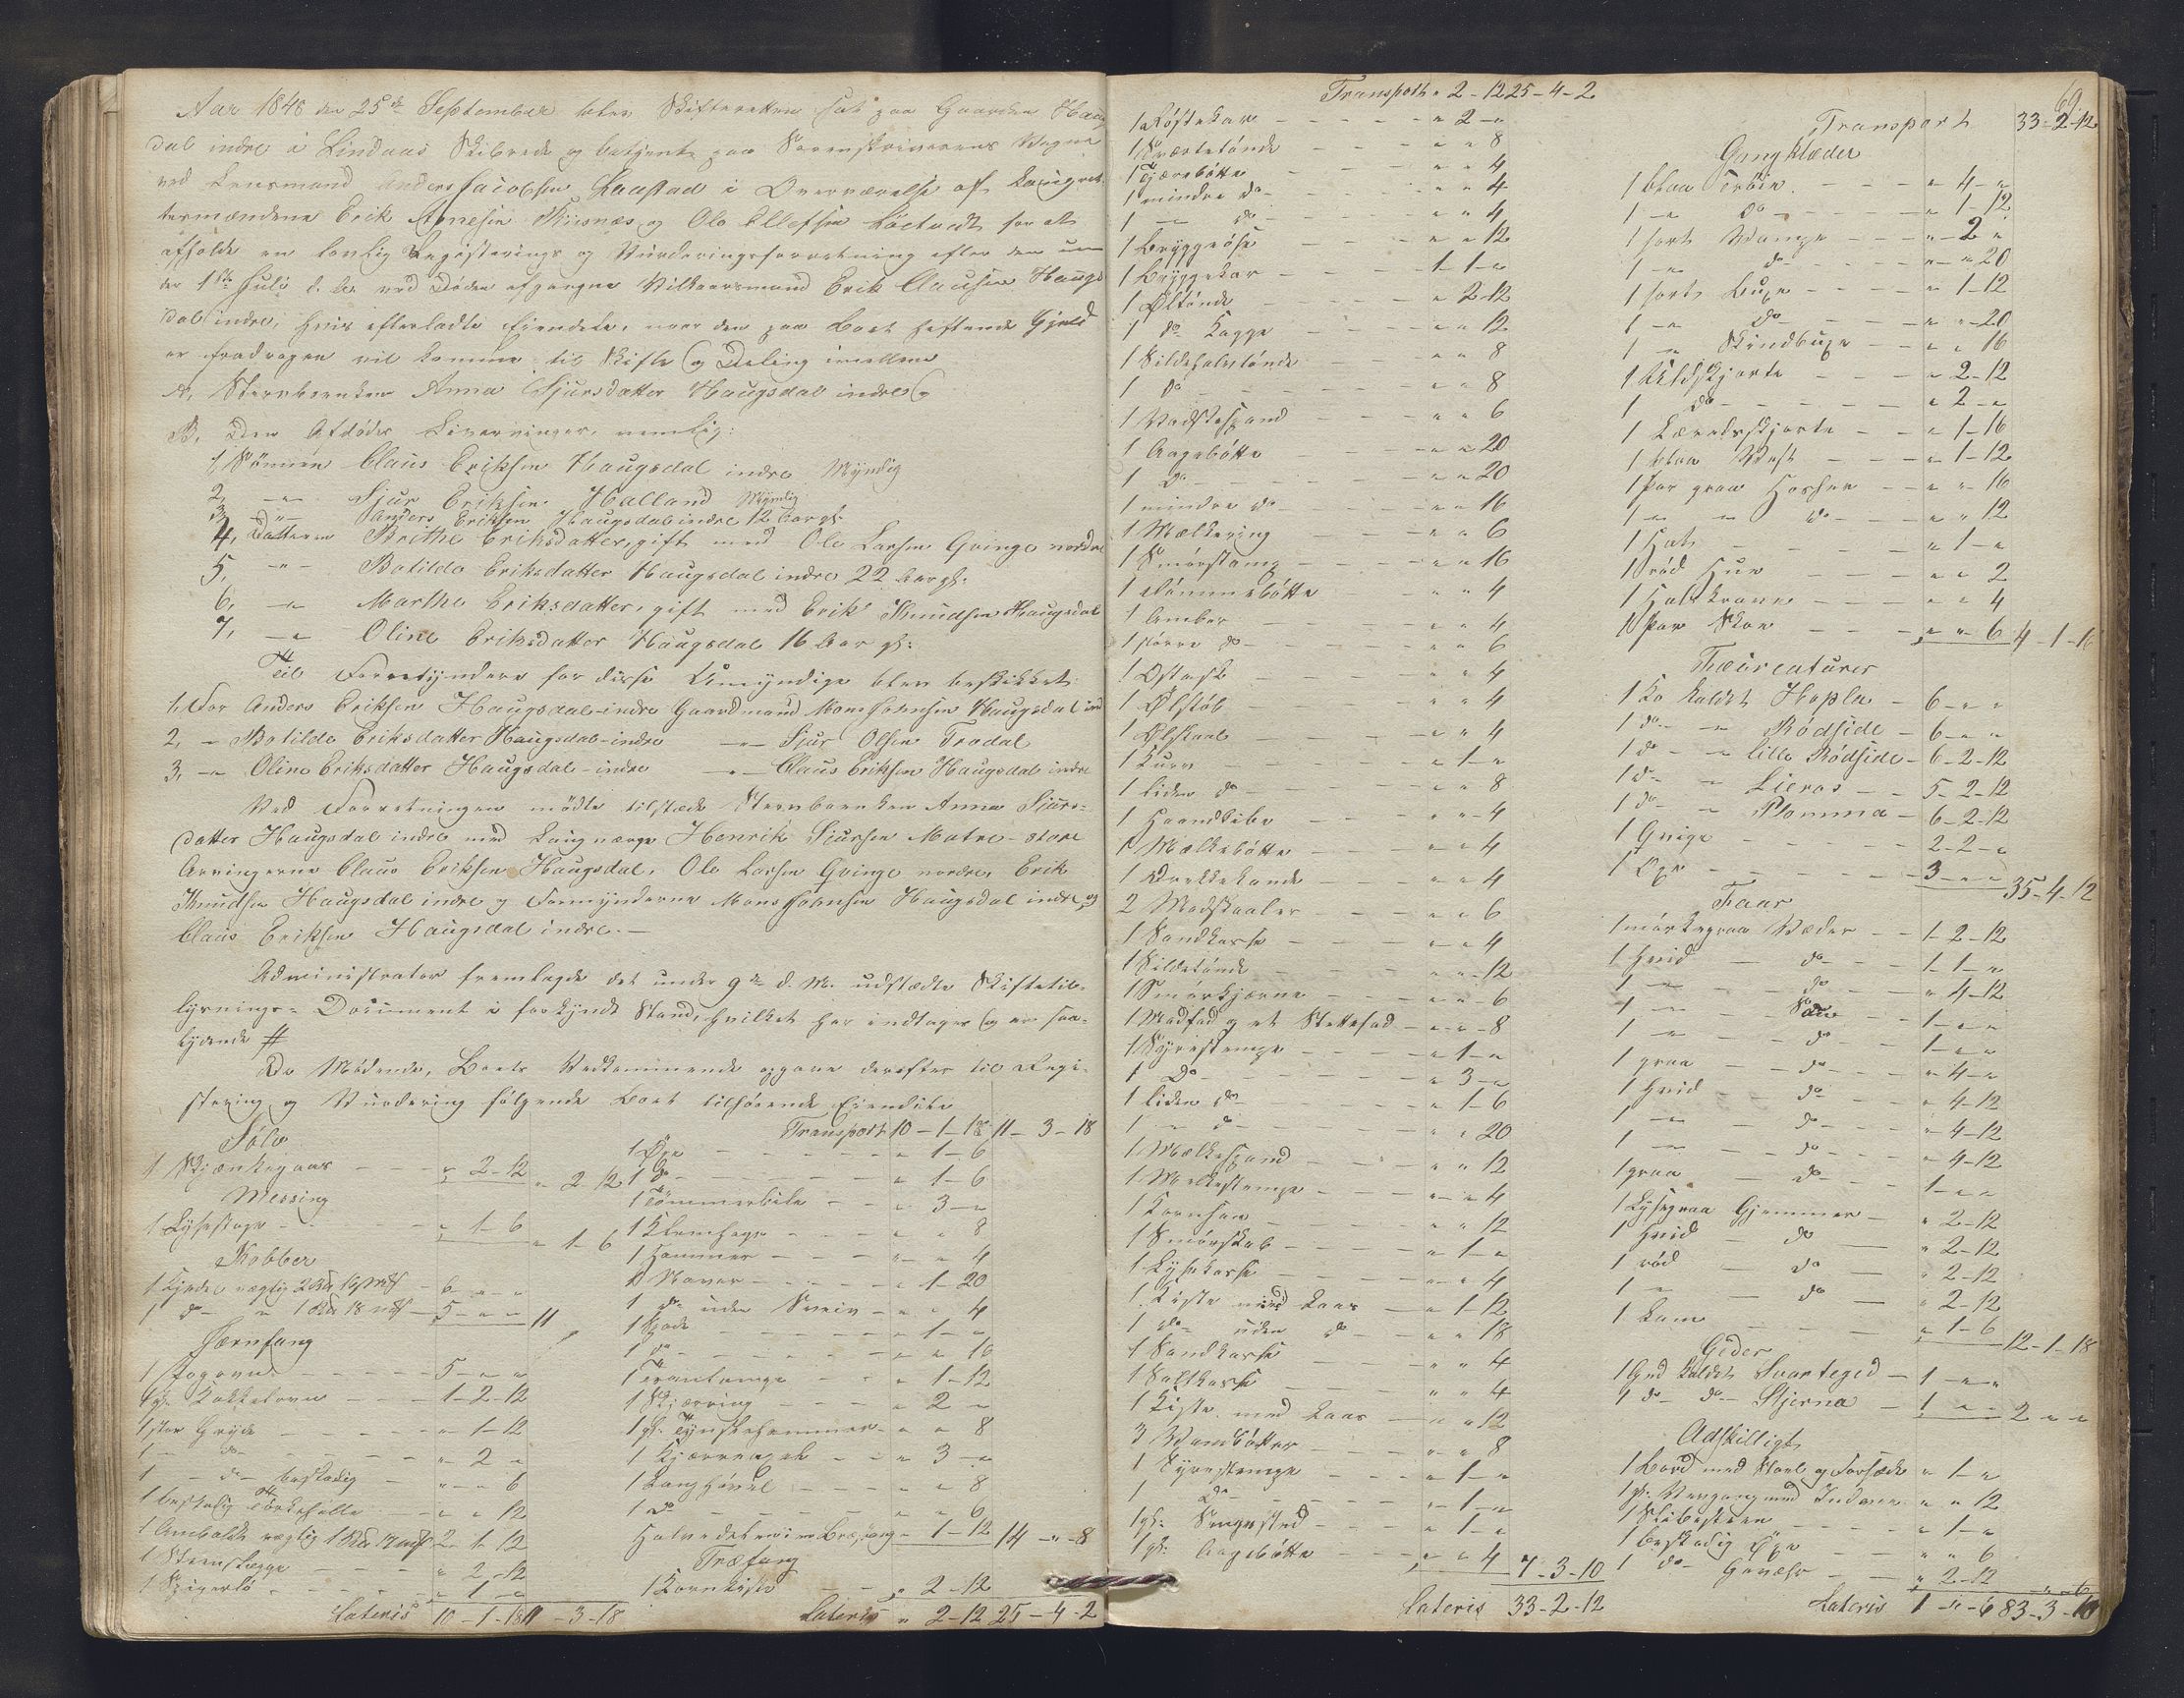 Aar 1848 den 25de September blev Skifteretten sat paa Gaarden Haugs
dal indre i Lindaas Skibrede og betjent paa Sorenskriverens Vegne
ved Lensmand Anders Jacobsen Laastad i Overværelse af Laugret
tesmændene Erik Arnesen Riisnæs og Ole Ellefsen for at
afholde en lovlig Registerings og Vurderingsforretning efter den un
der 1ste Juli d. A. ved Døden afgangne Vilkaarsmand Erik Clausen Haugs
dal indre, hvis efterladte Eiendele, naar den paa Boet heftende Gjæld
er fradragen vil komme til Skifte og Deling imellem
A, Stervboenken Anna Sjursdatter Haugsdal indre og
B, Den Afdødes Livarvinger, nemlig:
1, Sønnen Claus Eriksen Haugsdal indre Myndig
2, -"- Sjur Eriksen Halland Myndig
3, -"- Anders Eriksen Haugsdal indre 12 Aar gl.
4, Datteren Brithe Eriksdatter, gift med Ole Larsen Qvinge nordre
5, -"- Botilde Eriksdatter Haugsdal indre 22 Aar gl.
6, -"- Marthe Eriksdatter, gift med Erik Knudsen Haugsdal
7, -"- Oline Eriksdatter Haugsdal 16 Aar gl:
Til Formyndere for disse Umyndige blev beskikket
1, For Anders Eriksen Haugsdal-indre Gaardmand Mons Johnsen Haugsdal ind
2, -"- Botilde Eriksdatter Haugsdal-indre -"- Sjur Olsen Trodal
3, -"- Oline Eriksdatter Haugsdal-indre -"- Claus Eriksen Haugsdal indre
Ved Forretningen mødte tilstæde Stervboenken Anna Sjurs-
datter Haugsdal indre med Laugværge Henrik Sjursen Matre-store
Arvingerne Claus Eriksen Haugsdal, Ole Larsen Qvinge nordre, Erik
Knudsen Haugsdal indre og Formynderne Mons Johnsen Haugsdal indre, og
Claus Eriksen Haugsdal indre.-
Administrator fremlagde det under 9de d. M. udstædte Skiftetil-
lysnings-Document i forkyndt Stand, hvilket her indtages og er saa-
lydende #
De Mødende, Boets Vedkommende opgave derefter til Regi-
stering og Vurdering følgende Boet tilhørende Eiendele
Sølv
1 Skjænkegaas - - - " 2-12 " 2-12
Messing
1 Lysestage - - " 1-6 " 1-6
Kobber
1 Kjedel vægtig 2 - 6 " "
1 do - " 1 18 - 5 - " " 11
Jernfang
1 Jogovn - - - 5 - " "
1 gl. Kakkelovn - - 1-2-12
1 stor Gryde - - " 1-12
1 - do - - " 2 "
1 - do - beskadig - " " 6
1 beskadig - " " 12
1 Ambolt vægtig 2 1 12
1 Steenslægge - - " 2-12
1 - - " 1 "
Lateris 10-1-18 11-3-18
Transport 10-1-18 11-3-18
1 Øxe - - " 1-6
1 do - - " 1-6
1 Tømmerbile - - " 3 - "
1 Klemhage - - " " 8
1 Hammer - - " " 4
2 Naver - - " 1-20
1 do uden Sveiv - " " 4
1 Spade - - " 1 - "
1 do - - " " 16
1 - - " 1-12
1 - - " 2 "
1 gl. - " " 8
1 - - " 3 - "
1 Langhøvel - - " " 8
1 do - - " " 6
" 1-12 14 " 8
Træfang
1 Kornkiste - - " 2-12
Lateris " 2-12 25-4-2
Transport " 2-12 25-4-2
1 Røstekar - - " 2 - "
1 Sværtetønde - - " " 8
1 Tjærebøtte - - " " 4
1 mindre do - - " " 4
1 - " do - - " " 4
1 Bryggeøse - - " " 12
1 Bryggekar - - 1-1-"
1 Øltønde - - " 2-12
1 do Kagge - - " " 12
1 Sildehalvtønde - - " " 8
1 do - - " " 8
1 Vadskespand - - " " 6
1 Aagebøtte - - " " 20
1 do - - " " 20
1 mindre do - - " " 16
1 Mælkering - - " " 6
1 Smørstamp - - " " 16
1 Rømmebøtte - - " " 4
1 Ambar - - " " 4
1 større do - - " " 6
1 Ostask - - " " 4
1 Ølstøb - - " " 4
1 Ølskaal - - " " 4
1 Kurv - - " 1 - "
1 liden do - - " " 8
1 Haandbibe - - " " 4
1 Mælkebøtte - - " " 4
1 Drikkekande - - " " 4
2 Madskaaler - - " " 6
1 Sandkasse - - " " 4
1 Sildetønde - - " " 12
1 Smørkjærne - - " " 6
1 Madfad og et Stettefad - " " 8
1 Syrestampe - - " 1 - "
1 Do - - " 3 - "
1 liden do - - " 1-6
1 - " do - - " " 20
1 Mælkespand - - " " 12
1 Mælkestampe - - " " 4
1 - - " " 12
1 Smørskab - - " 1 - "
1 Lysekasse - - " " 4
1 Kiste med Laas - " 1-12
1 do uden do - " " 18
1 Sandkasse - - " " 4
1 Saltkasse - - " " 4
1 Kiste med Laas - " " 12
3 Vandbøtter - - " " 8
1 Syrestampe - - " 1 - "
1 Do - - " 1 - "
1 gl. Sengested - - " 1 - "
1 gl. Aagebøtte - - " " 4 7-3-10
Lateris 33-2-12
69.
Transport 33-2-12
Gangklæder
1 blaa Trøie - - " 4 - "
1 - " do - - " 1-12
1 sort Vampe - - " 2 "
1 - " do - - " " 20
1 sort Buxe - - " 1-12
1 - " do - - " " 20
1 " Skindbuxe - - " " 16
1 Uldskjorte - - " 2-12
1 do - - " 2 - "
1 Lærredsskjorte - - " 1-16
1 blaa Vest - - " 1-12
1 Par graa Hosser - - " " 16
1 - " - " do - - " " 12
1 Hat - - " 1 - "
1 rød Hue - - " " 2
1 Halskrave - - " " 4
1 Par Skoe - - " " 6 4-1-16
Fæcreaturer
1 Ko kaldet Hopla - 6 - " "
1 do - " Rødside - 6 - " "
1 do - " lille Rødside - 6-2-12
1 do - " Lieros - - 5-2-12
1 do - " Plomma - 6-2-12
1 Qvige - - 2-2-"
1 Oxe - - 3 - " " 35-4-12
Faar
1 mørkegraa Væder - - 1-2-12
1 hvid - do - - 1-1-"
1 - " do - - " 4-12
1 - " - Sau - - 1 - " "
1 - " - do - - 1 - " "
1 graa - do - - " 4 - "
1 hvid - do - - " 4-12
1 - " - do - - " 4-12
1 - " - do - - " 4-12
1 graa - do - - 1 - " "
1 Lysegraa Gjemmer - " 2-12
1 hvid - do - " 2-12
1 rød - do - " 2-12
1 - " - do " 2-12
1 Lam - - " 1-6 12-1-18
Geder
1 Gied kaldet Svarteged - 1 - " "
1 do do - Stjerna - 1 - " " 2 " "
Adskilligt
1 Bord med Stoel og Forsæde " 1 - "
1 gl. Vævgang med " " 12
1 Slibesteen - - " 1 - "
1 beskadig Øxe - - " " 6
1 do Gevæhr - - " 2-12
Lateris 1 " 6 83-3-10